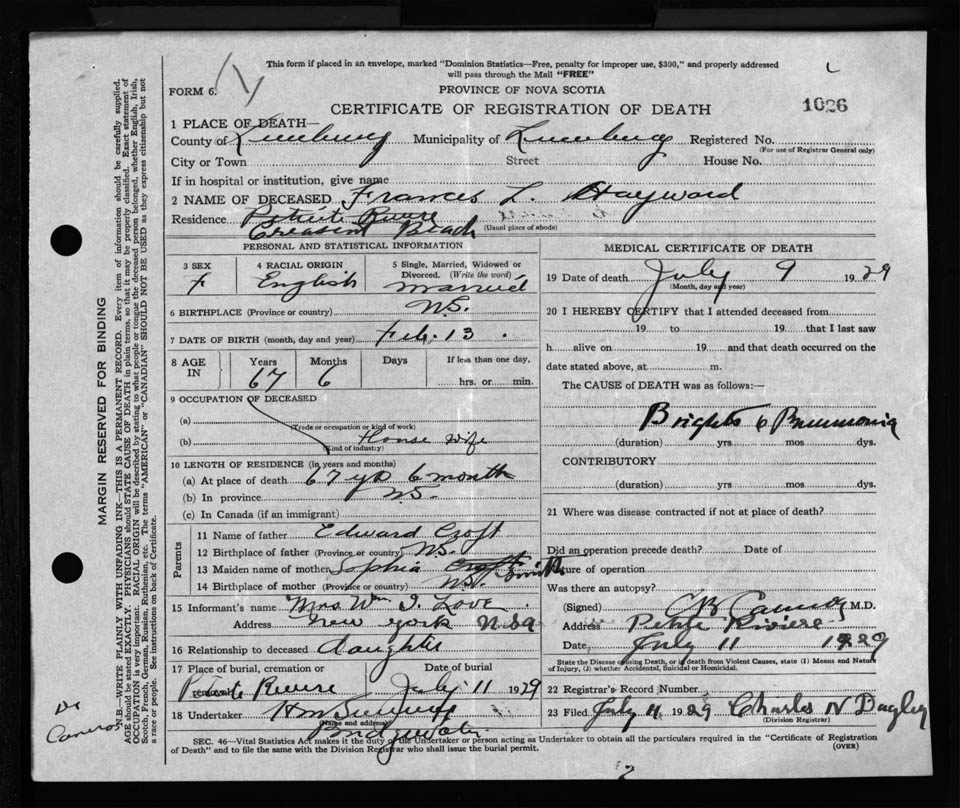 This form if placed in an envelope, marked "Dominion Statistics—Free, penalty for improper use, $300," and properly addressed
will pass through the Mail "FREE"
FORM 6.
PROVINCE OF NOVA SCOTIA
CERTIFICATE OF REGISTRATION OF DEATH
1026
1 PLACE OF DEATH—
County of Lunenburg Municipality of Lunenburg Registered No.
(For use of Registrar General only)
City or Town Street House No.
If in hospital or institution, give name
2 NAME OF DECEASED Frances L. Hayward
Residence Petite Riviere
Creasent Beach (Usual place of abode)
PERSONAL AND STATISTICAL INFORMATION
3 SEX F
4 RACIAL ORIGIN English
5 Single, Married, Widowed or Divorced. (Write the word) married
6 BIRTHPLACE (Province or country) N.S.
7 DATE OF BIRTH (month, day and year) Feb. 13
8 AGE IN Years Months Days If less than one day,
67 6 hrs. or min.
9 OCCUPATION OF DECEASED
(a)
(Trade or occupation or kind of work)
(b) House wife
(Kind of industry)
10 LENGTH OF RESIDENCE (in years and months)
(a) At place of death 67 yrs 6 month
(b) In province N.S.
(c) In Canada (if an immigrant)
Parents
11 Name of father Edward Croft
12 Birthplace of father (Province or country) N.S.
13 Maiden name of mother Sophia Croft Smith
14 Birthplace of mother (Province or country) N.S.
15 Informant's name Mrs. Wm I. Love
Address new york U S a
16 Relationship to deceased daughter
17 Place of burial, cremation or removal Date of burial
Petite Riviere July 11 1929
18 Undertaker
(Name and address)
Bridgewater
MEDICAL CERTIFICATE OF DEATH
19 Date of death July 9 1929
(Month, day and year)
20 I HEREBY CERTIFY that I attended deceased from
19 to 19 that I last saw
h alive on 19 and that death occurred on the
date stated above, at m.
The CAUSE of DEATH was as follows:—
Brights & Pneumonia
(duration) yrs mos dys.
CONTRIBUTORY
(duration) yrs mos dys.
21 Where was disease contracted if not at place of death?
Did an operation precede death? Date of
Nature of operation
Was there an autopsy?
(Signed) M.D.
Address Petite Riviere
Date July 11 1929
State the Disease causing Death, or if death from Violent Causes, state (1) Means and Nature
of Injury, (2) whether Accidental, Suicidal or Homicidal.
22 Registrar's Record Number
23 Filed July 11 1929 Charles N Bagley
(Division Registrar)
SEC. 46—Vital Statistics Act makes it the duty of the Undertaker or person acting as Undertaker to obtain all the particulars required in the "Certificate of Registration
of Death" and to file the same with the Division Registrar who shall issue the burial permit.
(OVER)
2
MARGIN RESERVED FOR BINDING
N.B.—WRITE PLAINLY WITH UNFADING INK—THIS IS A PERMANENT RECORD. Every item of information should be carefully supplied.
AGE should be stated EXACTLY. PHYSICIANS should STATE CAUSE OF DEATH in plain terms, so that it may be properly classified. Exact statement of
OCCUPATION is very important. RACIAL ORIGIN will be described by stating to what people or tongue the deceased person belonged, whether English, Irish,
Scotch, French, German, Russian, Ruthenian, etc. The terms "AMERICAN" or "CANADIAN" SHOULD NOT BE USED as they express citizenship but not
a race or people. See instructions on back of Certificate.
Dr
Cameron